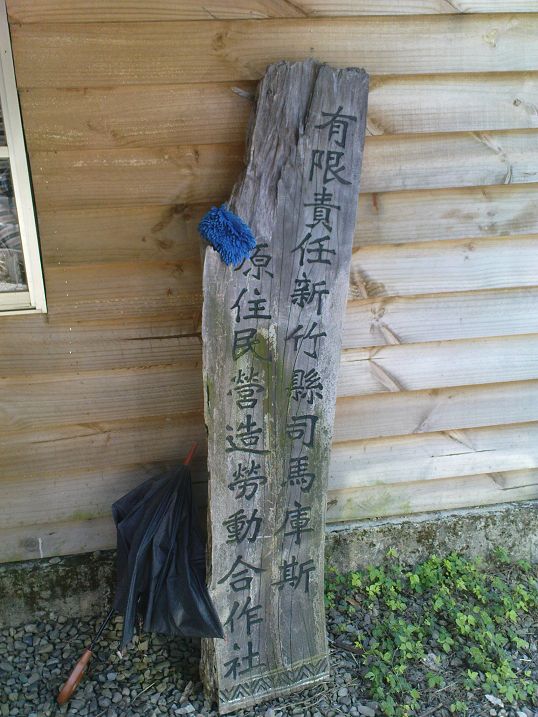 有限責任新竹縣司馬庫斯
原住民營造勞動合作社